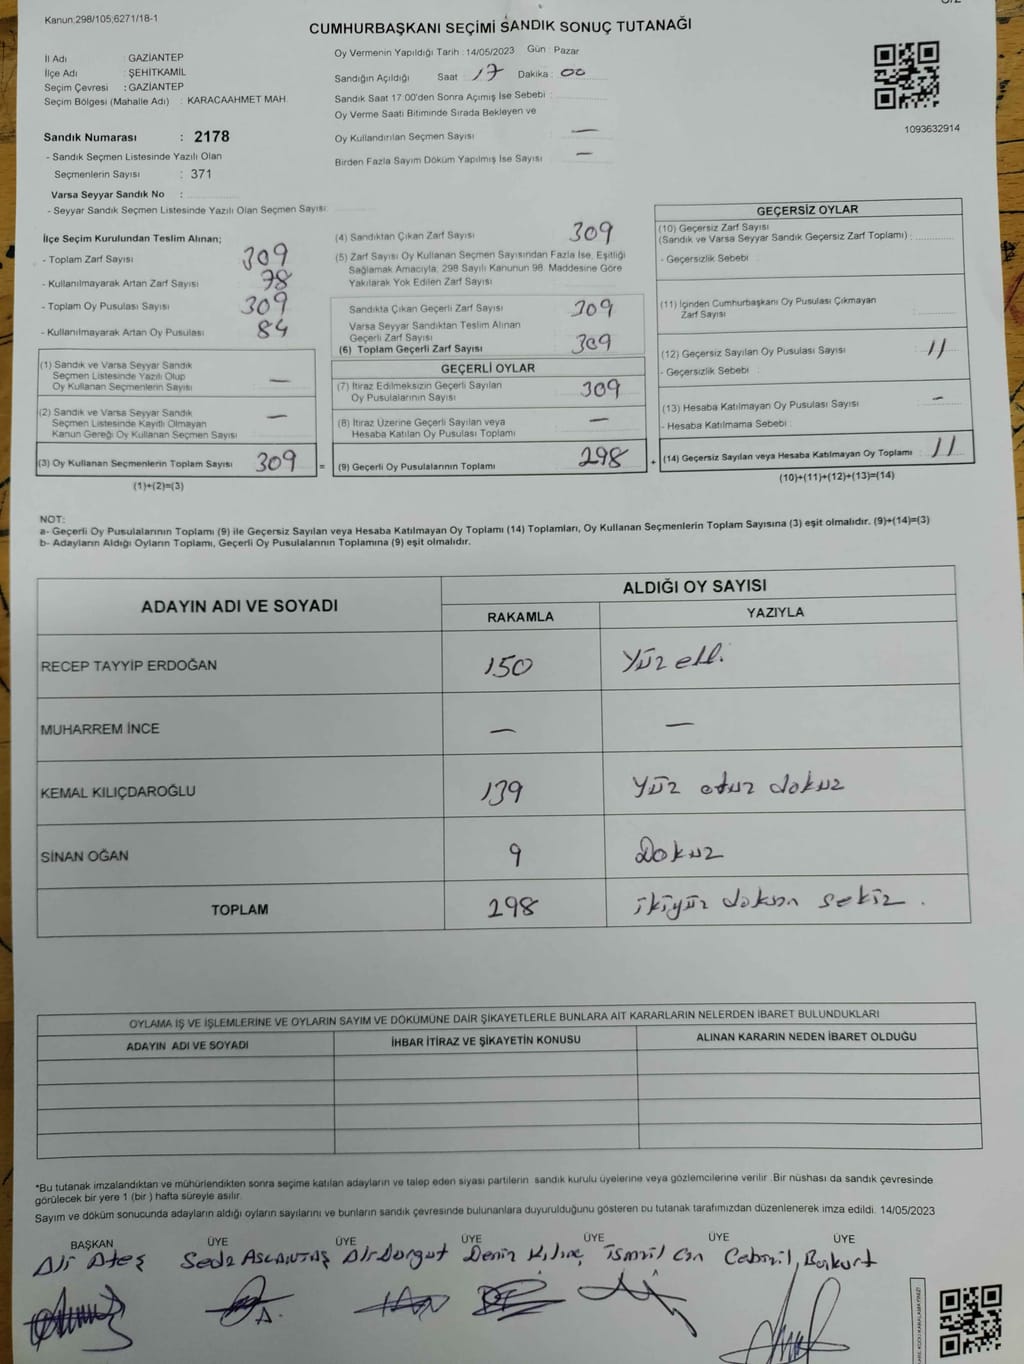 Kanun:298/105;6271/18-1
CUMHURBAŞKANI SEÇİMİ SANDIK SONUÇ TUTANAĞI
İl Adı : GAZİANTEP
İlçe Adı : ŞEHİTKAMİL
Seçim Çevresi : GAZİANTEP
Seçim Bölgesi (Mahalle Adı) : KARACAAHMET MAH.
Sandık Numarası : 2178
- Sandık Seçmen Listesinde Yazılı Olan
Seçmenlerin Sayısı : 371
Varsa Seyyar Sandık No :
- Seyyar Sandık Seçmen Listesinde Yazılı Olan Seçmen Sayısı:
Oy Vermenin Yapıldığı Tarih : 14/05/2023 Gün : Pazar
Sandığın Açıldığı Saat : 17 Dakika : 00
Sandık Saat 17:00'den Sonra Açımış İse Sebebi :
Oy Verme Saati Bitiminde Sırada Bekleyen ve
Oy Kullandırılan Seçmen Sayısı : —
Birden Fazla Sayım Döküm Yapılmış İse Sayısı : —
1093632914
İlçe Seçim Kurulundan Teslim Alınan;
- Toplam Zarf Sayısı : 309
- Kullanılmayarak Artan Zarf Sayısı : 78
- Toplam Oy Pusulası Sayısı : 309
- Kullanılmayarak Artan Oy Pusulası : 84
(1) Sandık ve Varsa Seyyar Sandık
Seçmen Listesinde Yazılı Olup
Oy Kullanan Seçmenlerin Sayısı : —
(2) Sandık ve Varsa Seyyar Sandık
Seçmen Listesinde Kayıtlı Olmayan
Kanun Gereği Oy Kullanan Seçmen Sayısı : —
(3) Oy Kullanan Seçmenlerin Toplam Sayısı : 309 =
(1)+(2)=(3)
(4) Sandıktan Çıkan Zarf Sayısı : 309
(5) Zarf Sayısı Oy Kullanan Seçmen Sayısından Fazla İse, Eşitliği
Sağlamak Amacıyla, 298 Sayılı Kanunun 98. Maddesine Göre
Yakılarak Yok Edilen Zarf Sayısı :
Sandıkta Çıkan Geçerli Zarf Sayısı : 309
Varsa Seyyar Sandıktan Teslim Alınan
Geçerli Zarf Sayısı :
(6) Toplam Geçerli Zarf Sayısı : 309
GEÇERLİ OYLAR
(7) İtiraz Edilmeksizin Geçerli Sayılan
Oy Pusulalarının Sayısı : 309
(8) İtiraz Üzerine Geçerli Sayılan veya
Hesaba Katılan Oy Pusulası Toplamı : —
(9) Geçerli Oy Pusulalarının Toplamı : 298 +
GEÇERSİZ OYLAR
(10) Geçersiz Zarf Sayısı
(Sandık ve Varsa Seyyar Sandık Geçersiz Zarf Toplamı) :
- Geçersizlik Sebebi :
(11) İçinden Cumhurbaşkanı Oy Pusulası Çıkmayan
Zarf Sayısı :
(12) Geçersiz Sayılan Oy Pusulası Sayısı : 11
- Geçersizlik Sebebi :
(13) Hesaba Katılmayan Oy Pusulası Sayısı : —
- Hesaba Katılmama Sebebi :
(14) Geçersiz Sayılan veya Hesaba Katılmayan Oy Toplamı : 11
(10)+(11)+(12)+(13)=(14)
NOT:
a- Geçerli Oy Pusulalarının Toplamı (9) ile Geçersiz Sayılan veya Hesaba Katılmayan Oy Toplamı (14) Toplamları, Oy Kullanan Seçmenlerin Toplam Sayısına (3) eşit olmalıdır. (9)+(14)=(3)
b- Adayların Aldığı Oyların Toplamı, Geçerli Oy Pusulalarının Toplamına (9) eşit olmalıdır.
ADAYIN ADI VE SOYADI
ALDIĞI OY SAYISI
RAKAMLA YAZIYLA
RECEP TAYYİP ERDOĞAN 150 Yüz elli
MUHARREM İNCE — —
KEMAL KILIÇDAROĞLU 139 Yüz otuz dokuz
SİNAN OĞAN 9 Dokuz
TOPLAM 298 ikiyüz doksan sekiz .
OYLAMA İŞ VE İŞLEMLERİNE VE OYLARIN SAYIM VE DÖKÜMÜNE DAİR ŞİKAYETLERLE BUNLARA AİT KARARLARIN NELERDEN İBARET BULUNDUKLARI
ADAYIN ADI VE SOYADI İHBAR İTİRAZ VE ŞİKAYETİN KONUSU ALINAN KARARIN NEDEN İBARET OLDUĞU
*Bu tutanak imzalandıktan ve mühürlendikten sonra seçime katılan adayların ve talep eden siyasi partilerin sandık kurulu üyelerine veya gözlemcilerine verilir. Bir nüshası da sandık çevresinde
görülecek bir yere 1 (bir ) hafta süreyle asılır.
Sayım ve döküm sonucunda adayların aldığı oyların sayılarını ve bunların sandık çevresinde bulunanlara duyurulduğunu gösteren bu tutanak tarafımızdan düzenlenerek imza edildi. 14/05/2023
BAŞKAN ÜYE ÜYE ÜYE ÜYE ÜYE ÜYE
Ali Ateş Seda Ali Durgut Deniz Kılınç İsmail Can Bozkurt